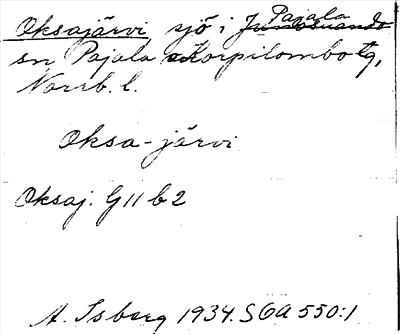 Oksajärvi sjö i Pajala Junosuando
sn, Pajala o Korpilombolo tg,
Norrb. l.
Oksa-järvi
Oksaj. G 11 b 2
A. Isberg 1934. SOA 550:1